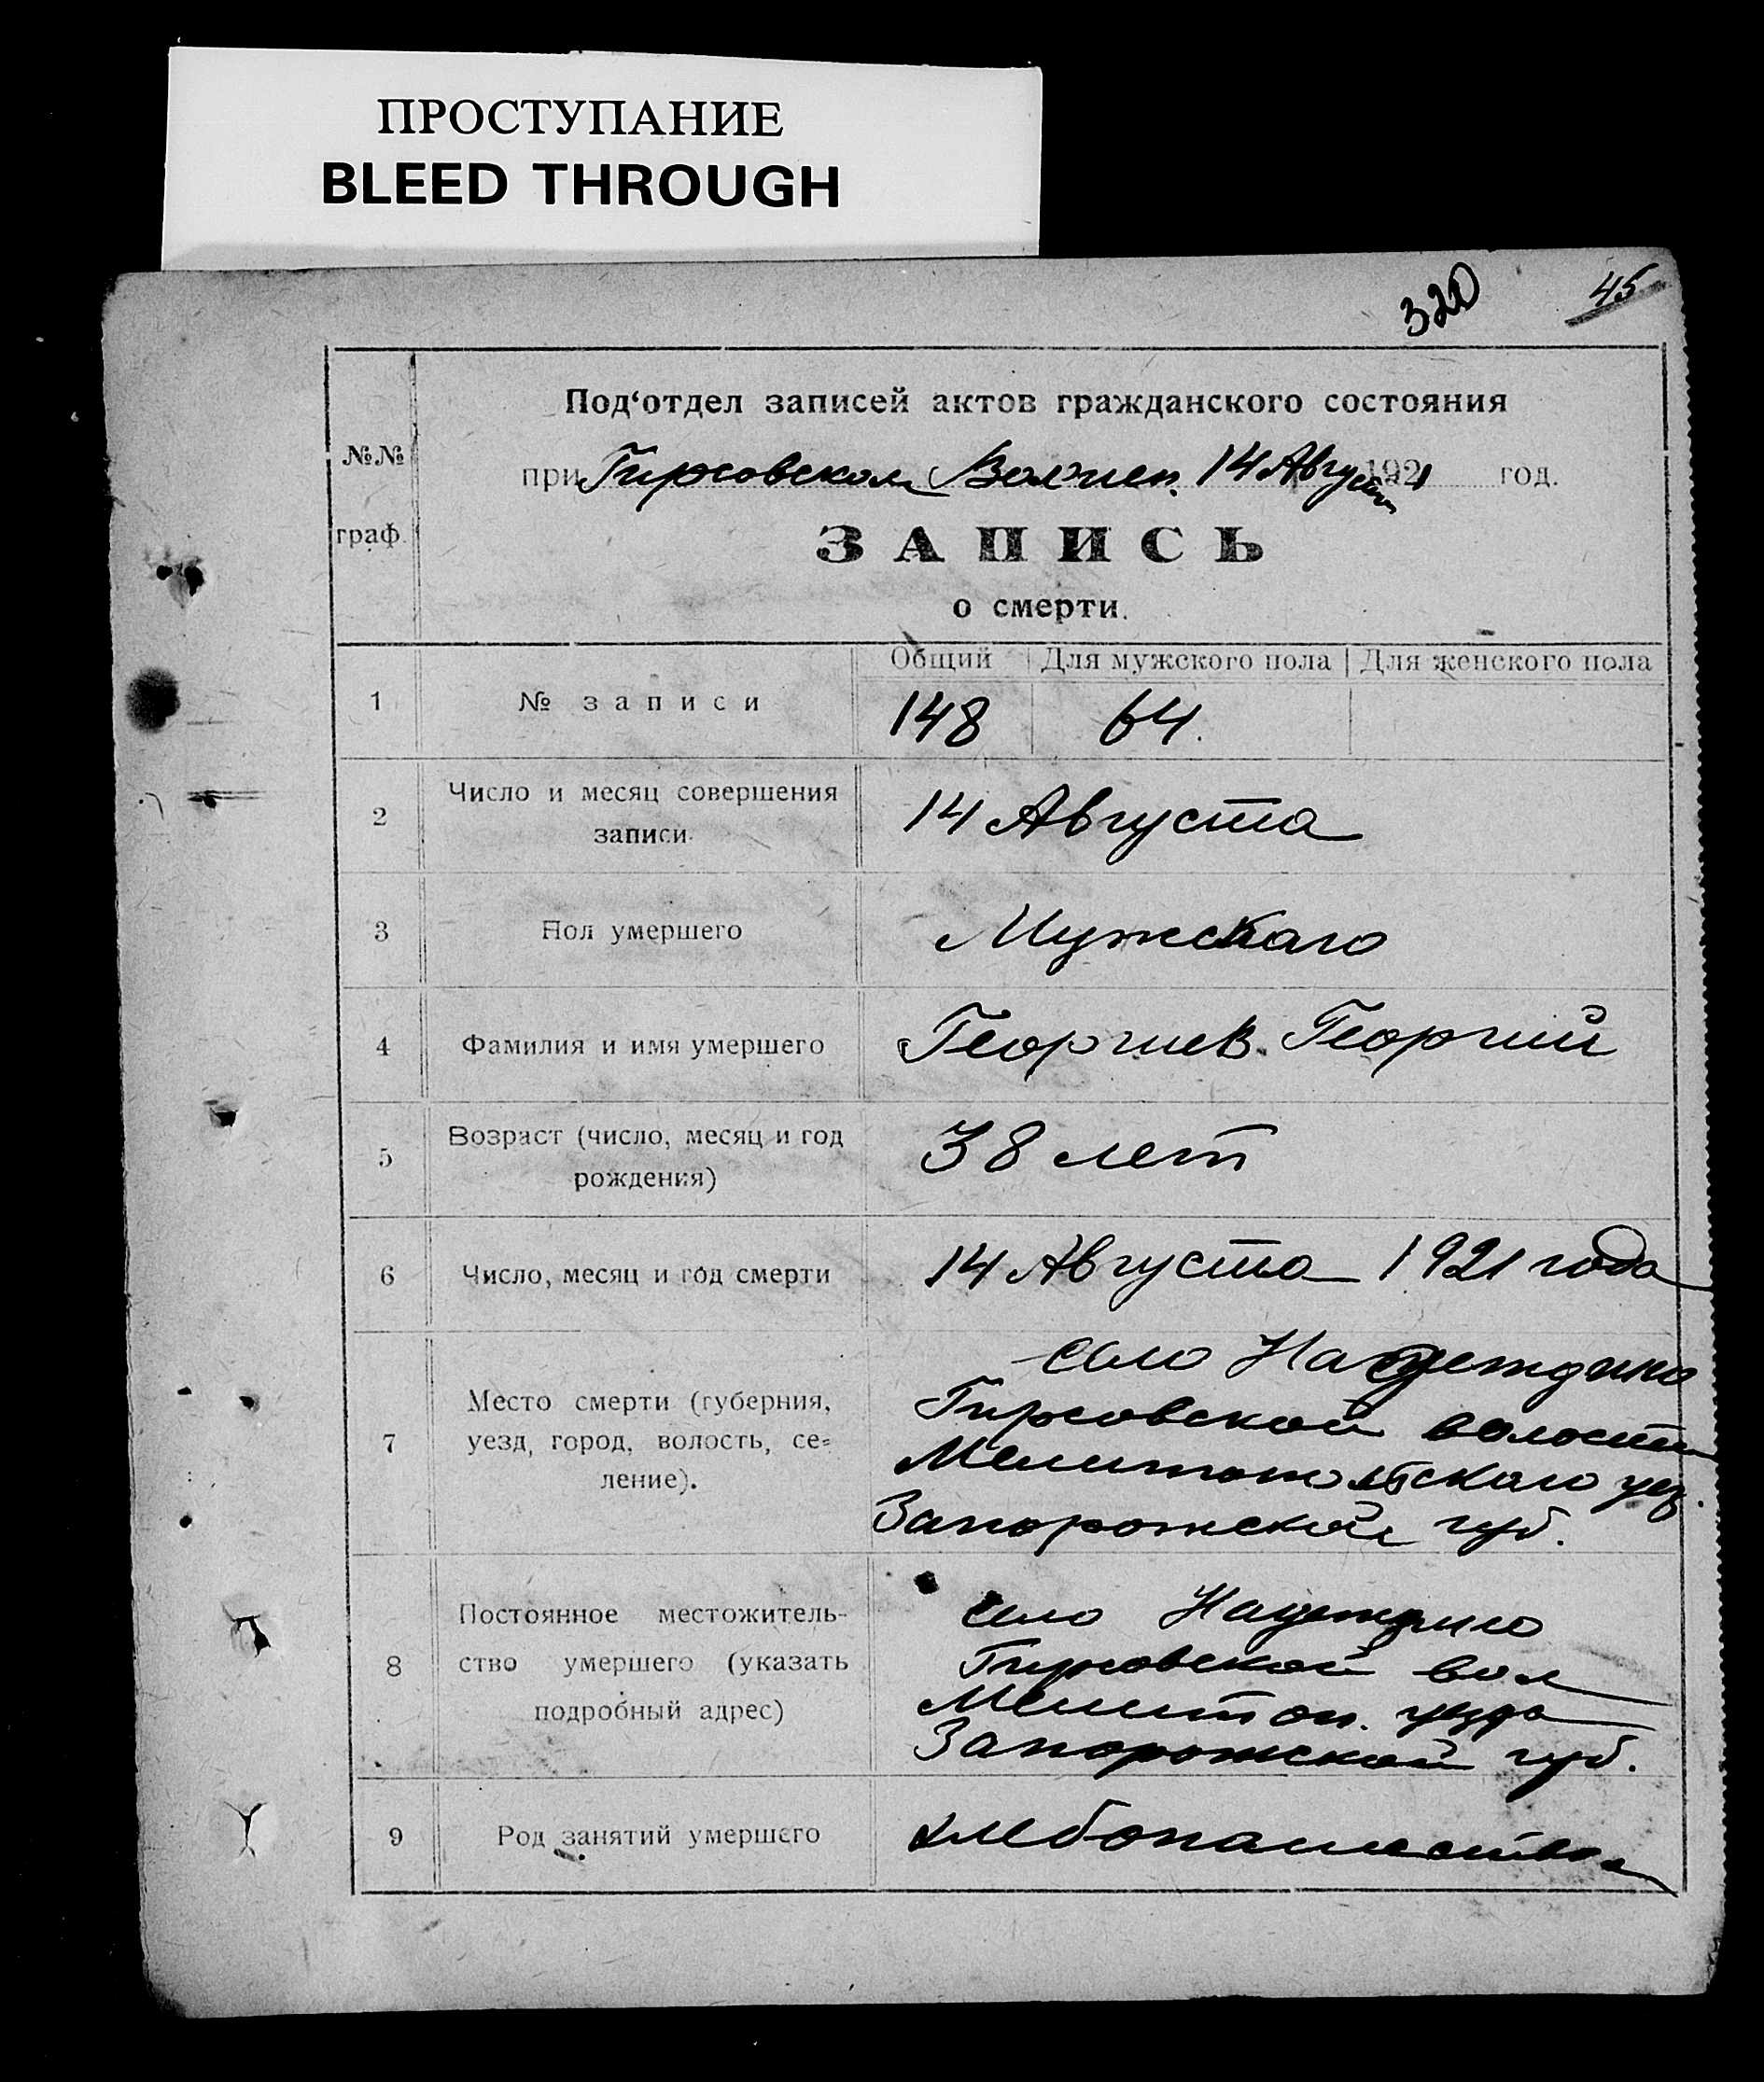 ПРОСТУПАНИЕ
BLEED THROUGH
320
45
Под‘отдел записей актов гражданского состояния
№№
при Гирсовском Волисп. 14 Августа 1921 год.
граф.
ЗАПИСЬ
о смерти.
Общий Для мужского пола Для женского пола
1 № записи 148 64.
2 Число и месяц совершения
записи. 14 Августа
3 Пол умершего Мужскаго
4 Фамилия и имя умершего Георгиев Георгий
5 Возраст (число, месяц и год
рождения) 38 лет
6 Число, месяц и год смерти 14 Августа 1921 года
село Надеждино
7 Место смерти (губерния, Гирсовской волости
уезд, город, волость, се= Мелитопольскаго уез.
ление). Запорожской губ.
8 Постоянное местожитель- село Надеждино
ство умершего (указать Гирсовской вол
подробный адрес) Мелитоп. уезда
Запорожской губ.
9 Род занятий умершего хлебопашество